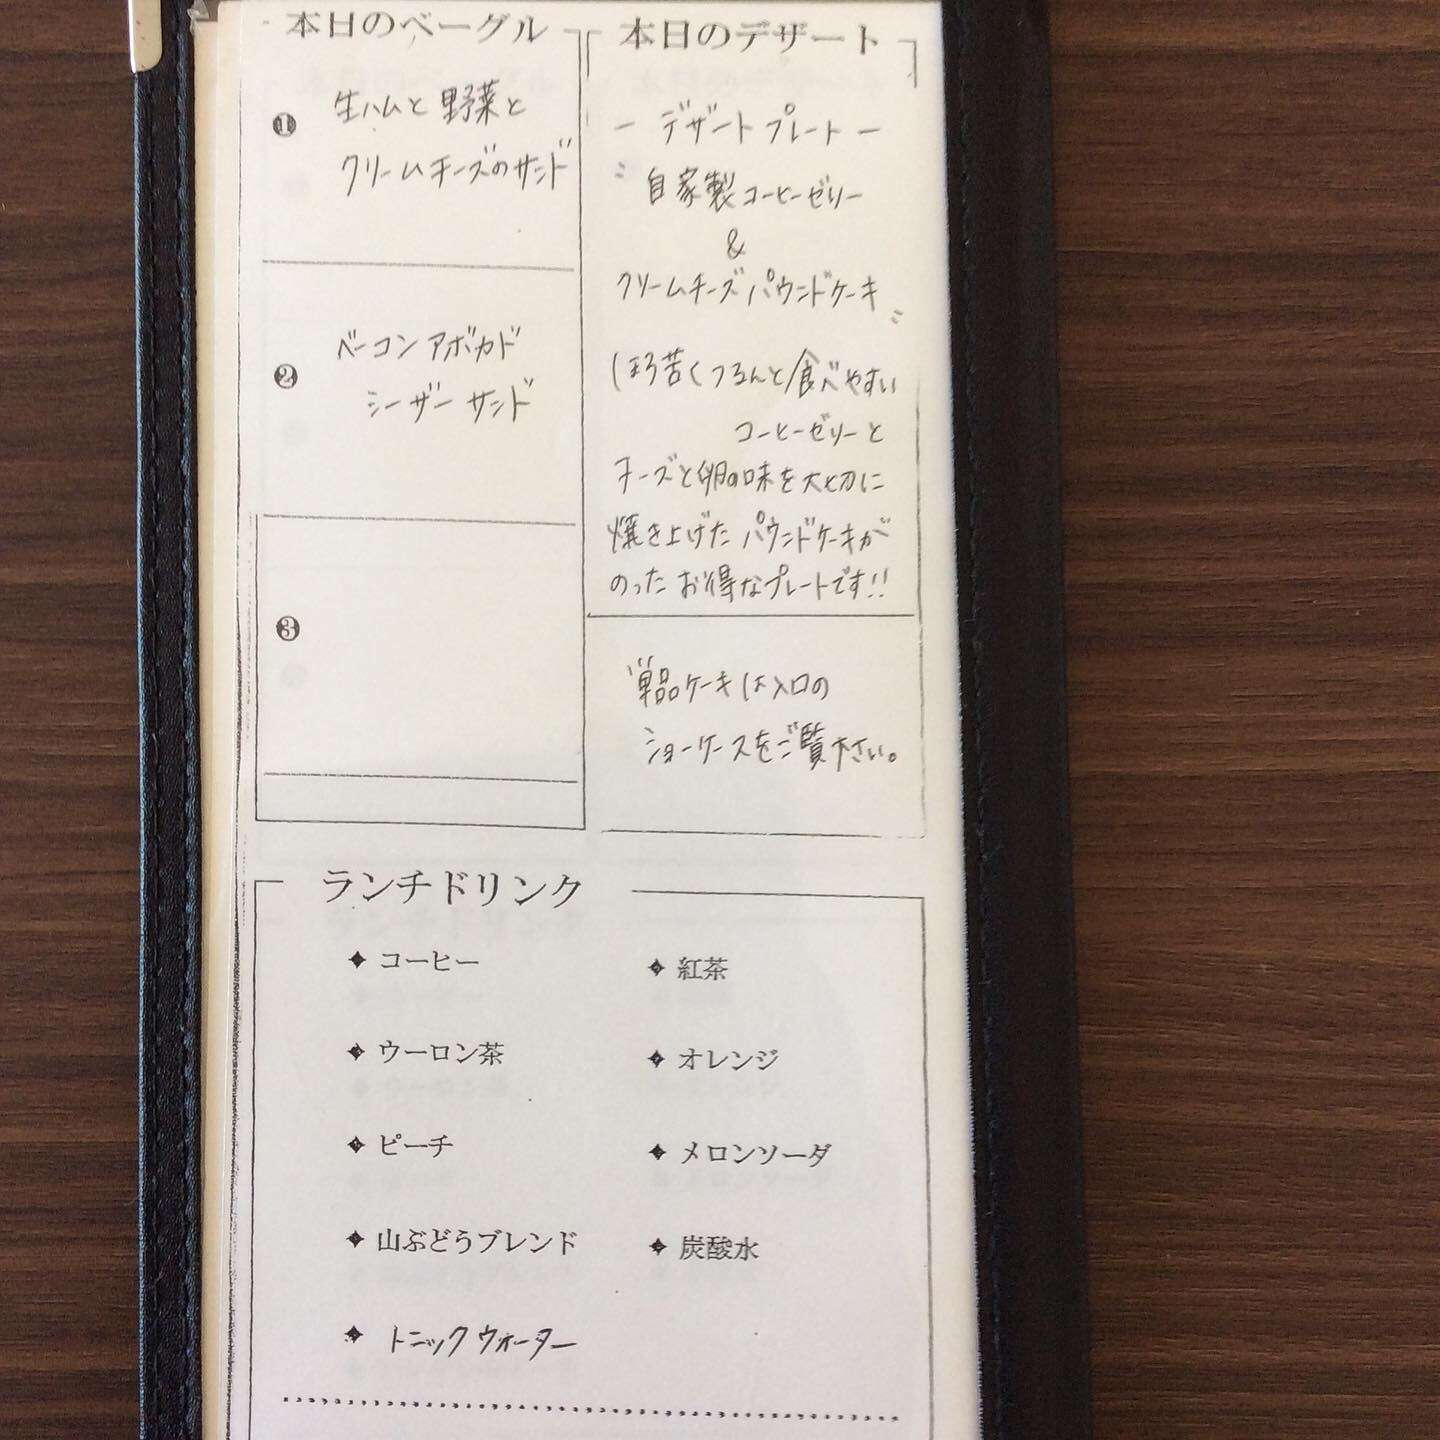 本日のベーグル
❶ 生ハムと野菜と
クリームチーズのサンド
❷ ベーコンアボカド
シーザーサンド
❸
本日のデザート
ー デザートプレート ー
〝自家製コーヒーゼリー
&
クリームチーズパウンドケーキ〟
ほろ苦くつるんと食べやすい
コーヒーゼリーと
チーズと卵の味を大切に
焼き上げたパウンドケーキが
のったお得なプレートです!!
単品ケーキは入口の
ショーケースをご覧下さい。
ランチドリンク
✦ コーヒー
✦ 紅茶
✦ ウーロン茶
✦ オレンジ
✦ ピーチ
✦ メロンソーダ
✦ 山ぶどうブレンド
✦ 炭酸水
✦ トニックウォーター